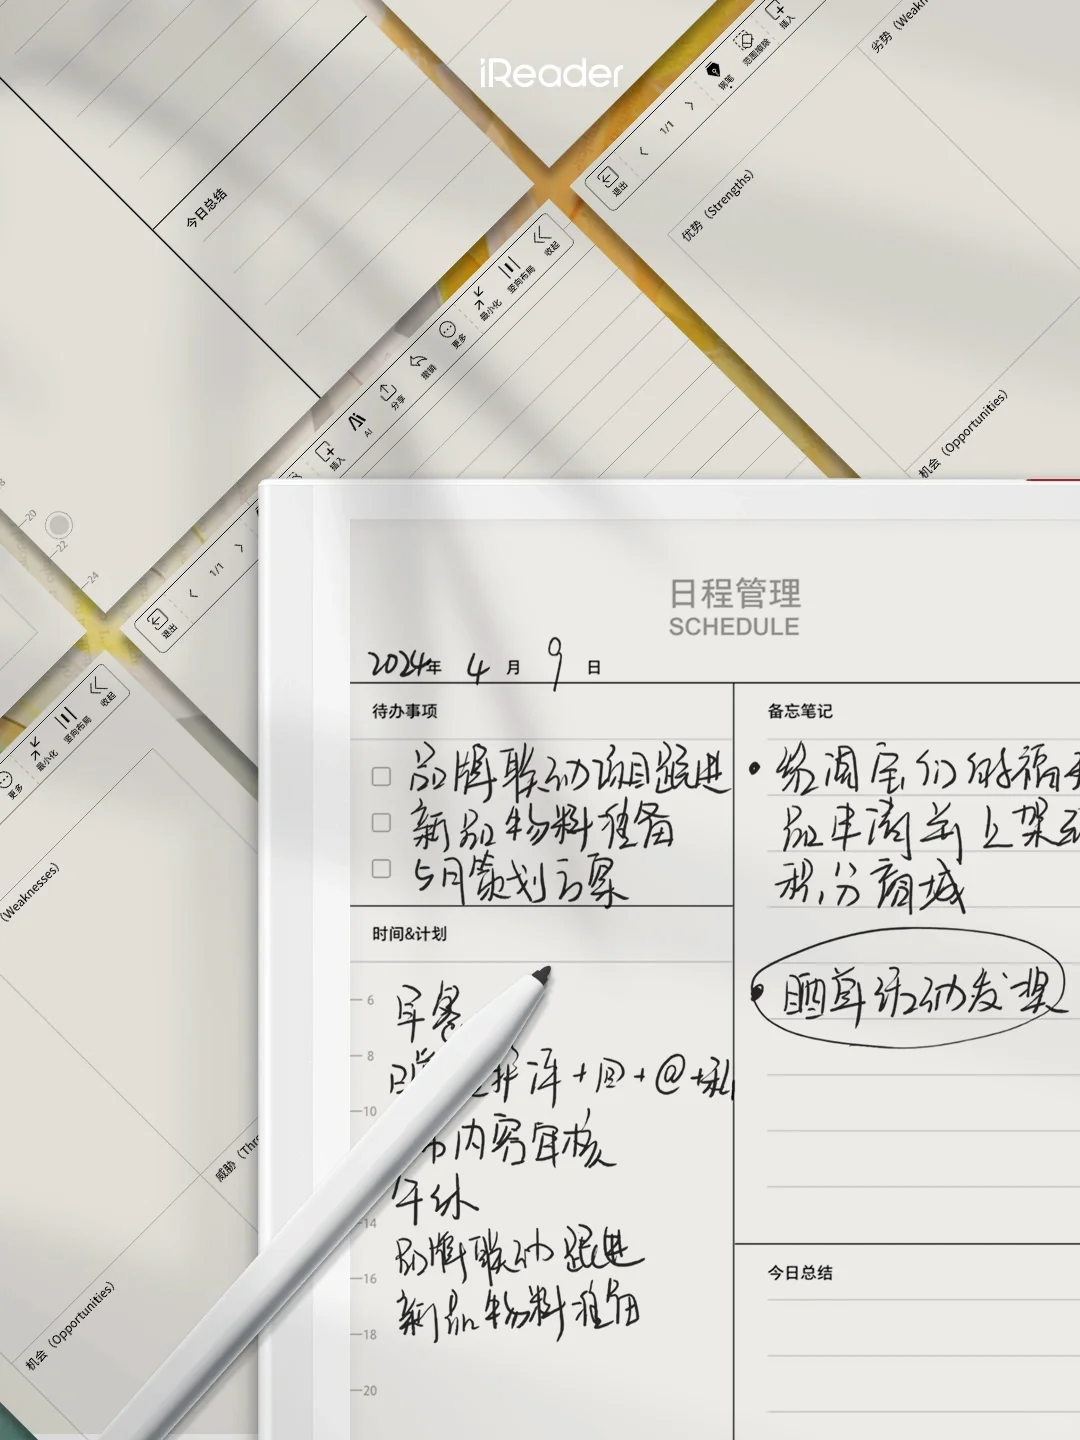 iReader
今日总结
退出
1/1
钢笔
范围擦除
插入
优势（Strengths）
机会（Opportunities）
收起
竖向布局
最小化
更多
撤销
分享
AI
插入
1/1
退出
20
22
24
收起
竖向布局
最小化
更多
(Weaknesses)
机会（Opportunities）
日程管理
SCHEDULE
2024年 4月 9日
待办事项
品牌联动项目跟进
新品物料准备
5月策划方案
时间&计划
6 早餐
8 评+回+@+私
10 内容审核
14 午休
16 品牌联动跟进
18 新品物料准备
20
备忘笔记
• 给阅宝们的福利
品申请并上架到
积分商城
• 晒单活动发奖
今日总结